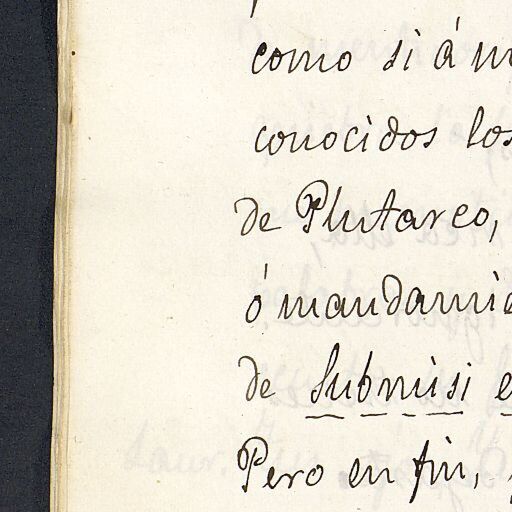 como si á
conocidos los
de Plutarco,
ó mandarni
de Submisi e
Pero en fin,